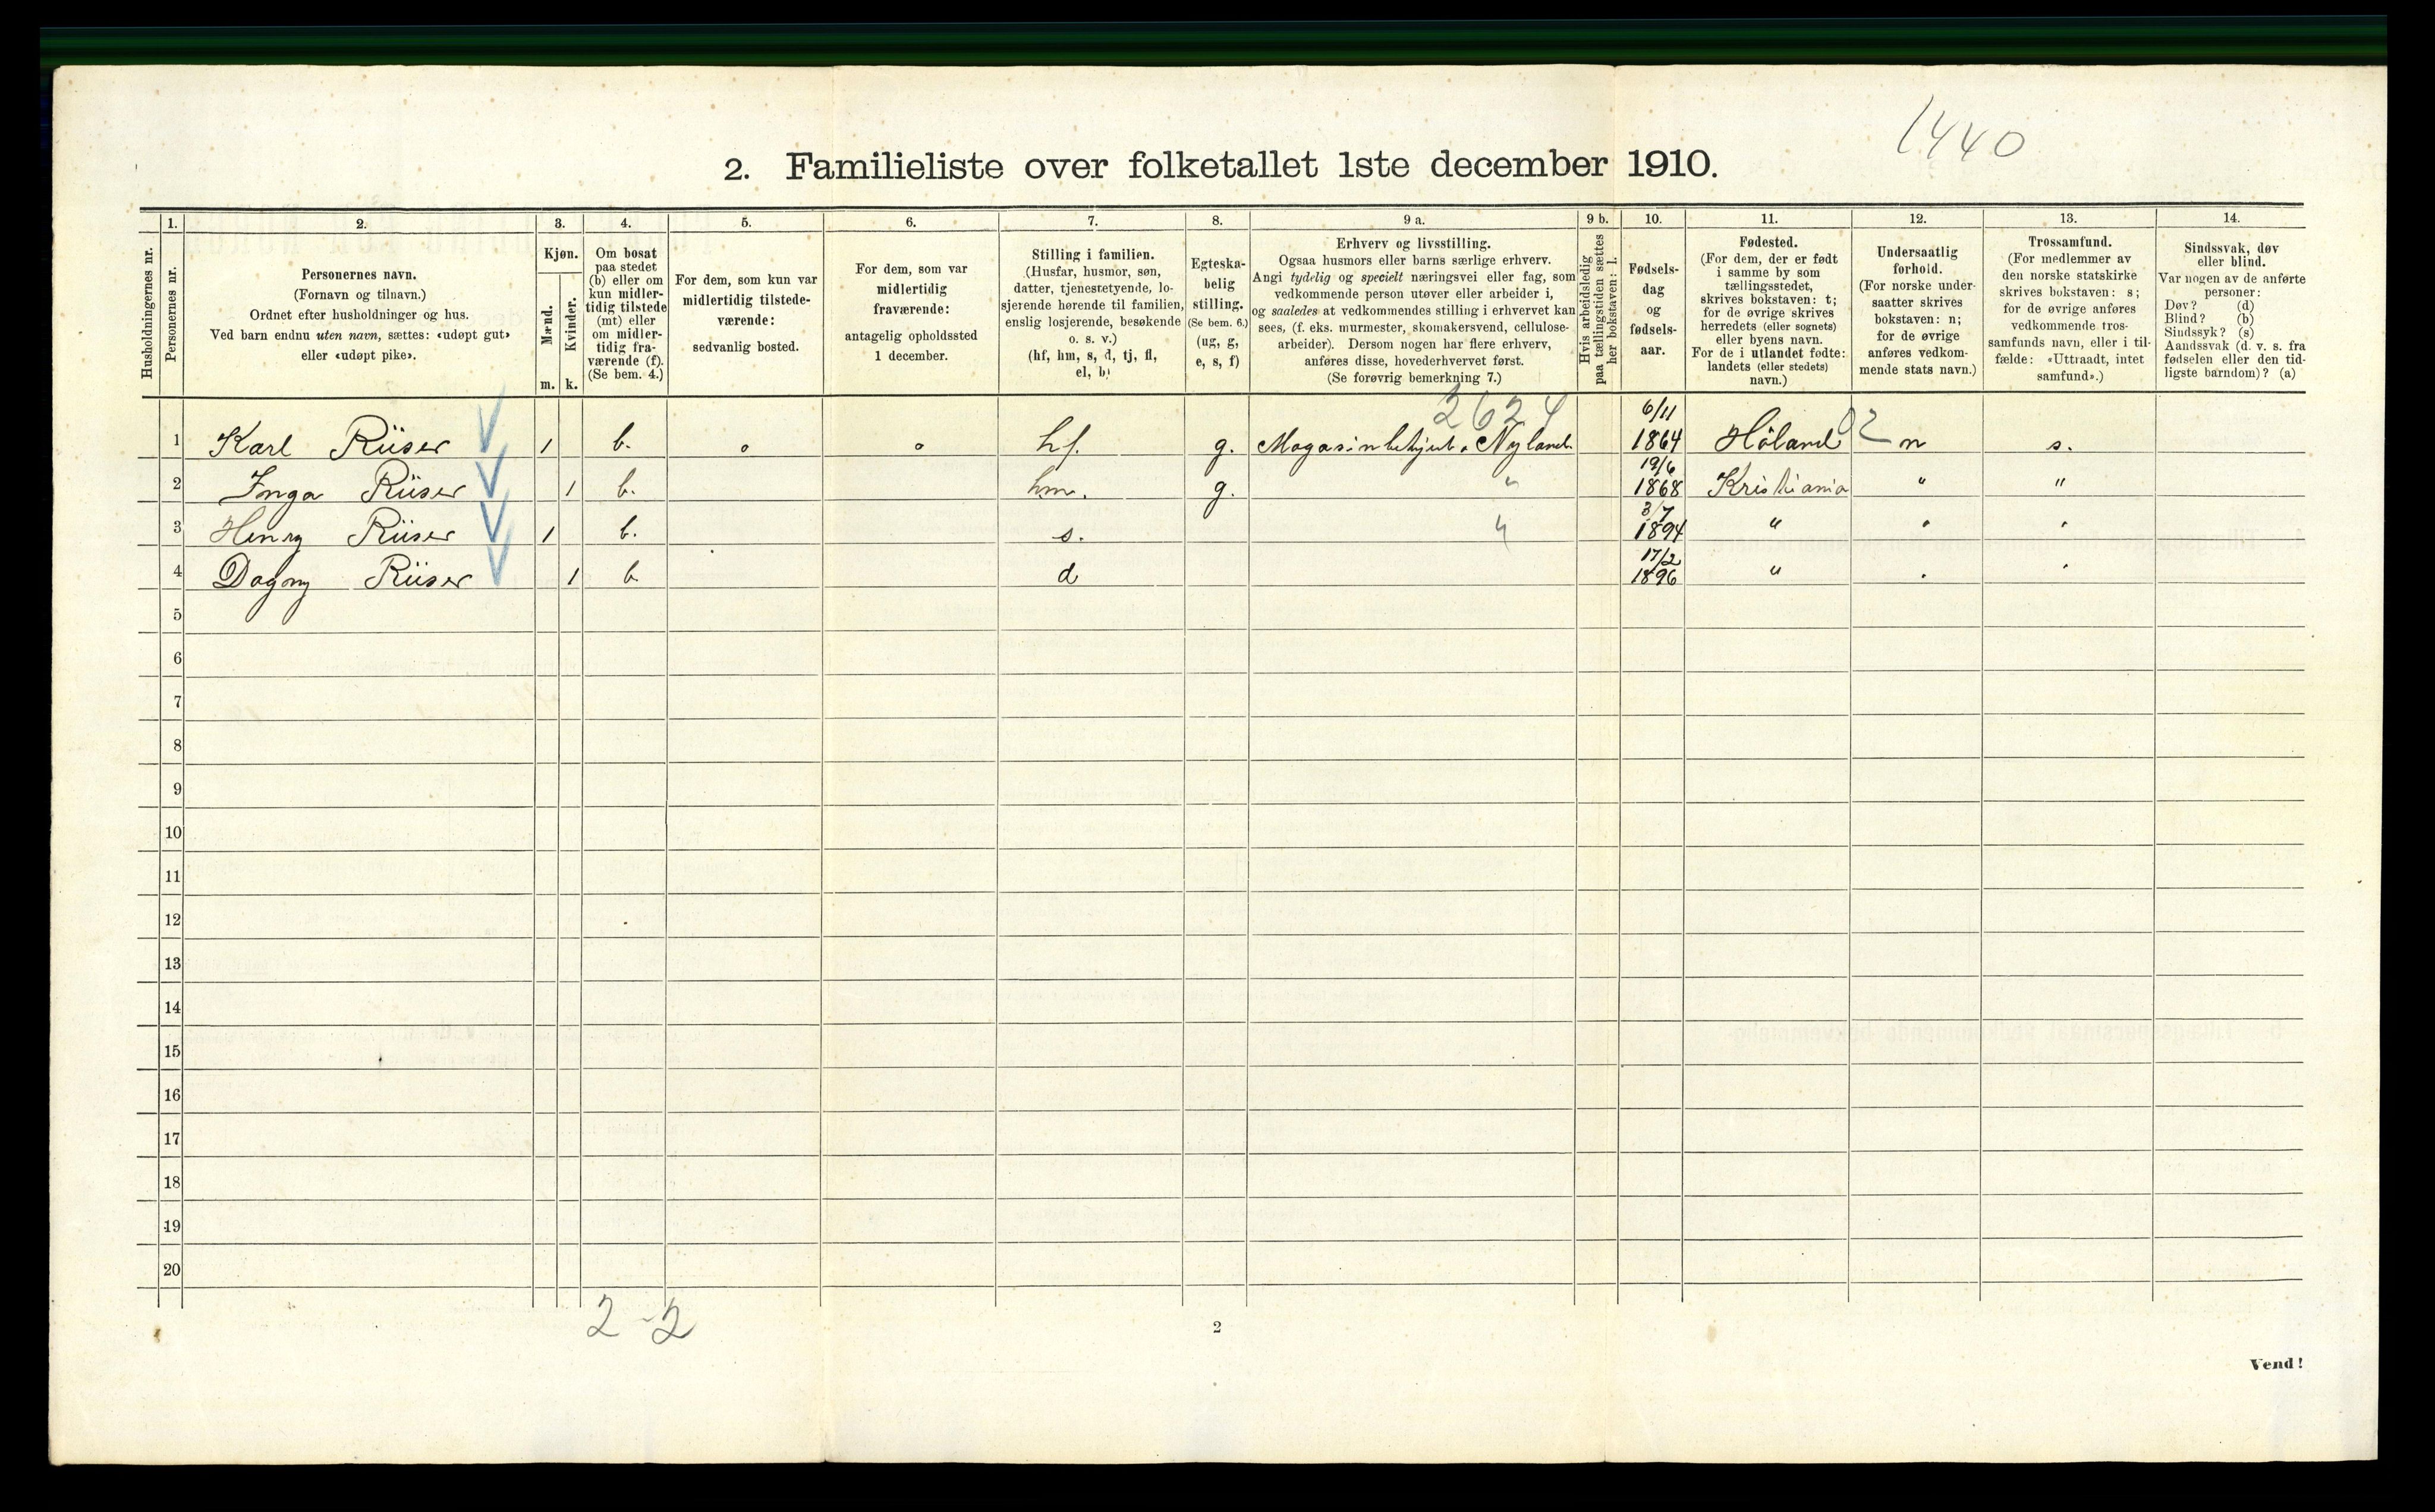 1440
2. Familieliste over folketallet 1ste december 1910.
Husholdningernes nr.
1.
Personernes nr.
2.
Personernes navn.
(Fornavn og tilnavn.)
Ordnet efter husholdninger og hus.
Ved barn endnu uten navn, sættes: «udøpt gut»
eller «udøpt pike».
3.
Kjøn.
Mænd.
m.
Kvinder.
k.
4.
Om bosat
paa stedet
(b) eller om
kun midler-
tidig tilstede
(mt) eller
om midler-
tidig fra-
værende (f).
(Se bem. 4.)
5.
For dem, som kun var
midlertidig tilstede-
værende:
sedvanlig bosted.
6.
For dem, som var
midlertidig
fraværende:
antagelig opholdssted
1 december.
7.
Stilling i familien.
(Husfar, husmor, søn,
datter, tjenestetyende, lo-
sjerende hørende til familien,
enslig losjerende, besøkende
o. s. v.)
(hf, hm, s, d, tj, fl,
el, b)
8.
Egteska-
belig
stilling.
(Se bem. 6.)
(ug, g,
e, s, f)
9 a.
Erhverv og livsstilling.
Ogsaa husmors eller barns særlige erhverv.
Angi tydelig og specielt næringsvei eller fag, som
vedkommende person utøver eller arbeider i,
og saaledes at vedkommendes stilling i erhvervet kan
sees, (f. eks. murmester, skomakersvend, cellulose-
arbeider). Dersom nogen har flere erhverv,
anføres disse, hovederhvervet først.
(Se forøvrig bemerkning 7.)
9 b.
Hvis arbeidsledig
paa tællingstiden sættes
her bokstaven: l.
10.
Fødsels-
dag
og
fødsels-
aar.
11.
Fødested.
(For dem, der er født
i samme by som
tællingsstedet,
skrives bokstaven: t;
for de øvrige skrives
herredets (eller sognets)
eller byens navn.
For de i utlandet fødte:
landets (eller stedets)
navn.)
12.
Undersaatlig
forhold.
(For norske under-
saatter skrives
bokstaven: n;
for de øvrige
anføres vedkom-
mende stats navn.)
13.
Trossamfund.
(For medlemmer av
den norske statskirke
skrives bokstaven: s;
for de øvrige anføres
vedkommende tros-
samfunds navn, eller i til-
fælde: «Uttraadt, intet
samfund».)
14.
Sindssvak, døv
eller blind.
Var nogen av de anførte
personer:
Døv? (d)
Blind? (b)
Sindssyk? (s)
Aandssvak (d. v. s. fra
fødselen eller den tid-
ligste barndom)? (a)
2624
1 Karl Riiser 1 b. hf. g. Nyland 6/11 1864 Höland 02 n s.
2 Inga Riiser 1 b. hm. g. " 19/6 1868 Kristiania " "
3 Henry Riiser 1 b. s. 3/7 1894 " " "
4 Dagny Riiser 1 b d 17/2 1896 " " "
5
6
7
8
9
10
11
12
13
14
15
16
17
18
19
20
2-2
2
Vend!